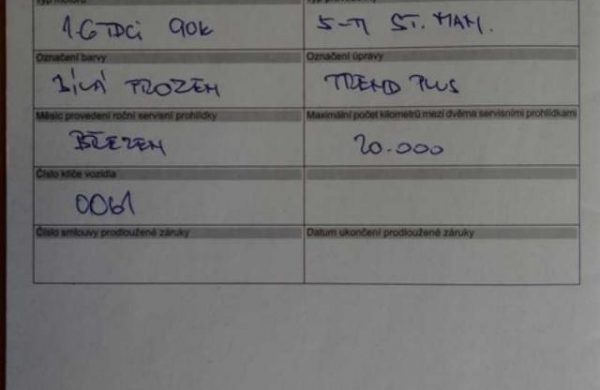 Typ motoru
1.6 TDCi 90k
5-TI ST. MAN.
Označení barvy
Označení úpravy
BÍLÁ FROZEN
TREND PLUS
Měsíc provedení roční servisní prohlídky
Maximální počet kilometrů mezi dvěma servisními prohlídkami
BŘEZEN
20.000
Číslo klíče vozidla
0061
Číslo smlouvy prodloužené záruky
Datum ukončení prodloužené záruky